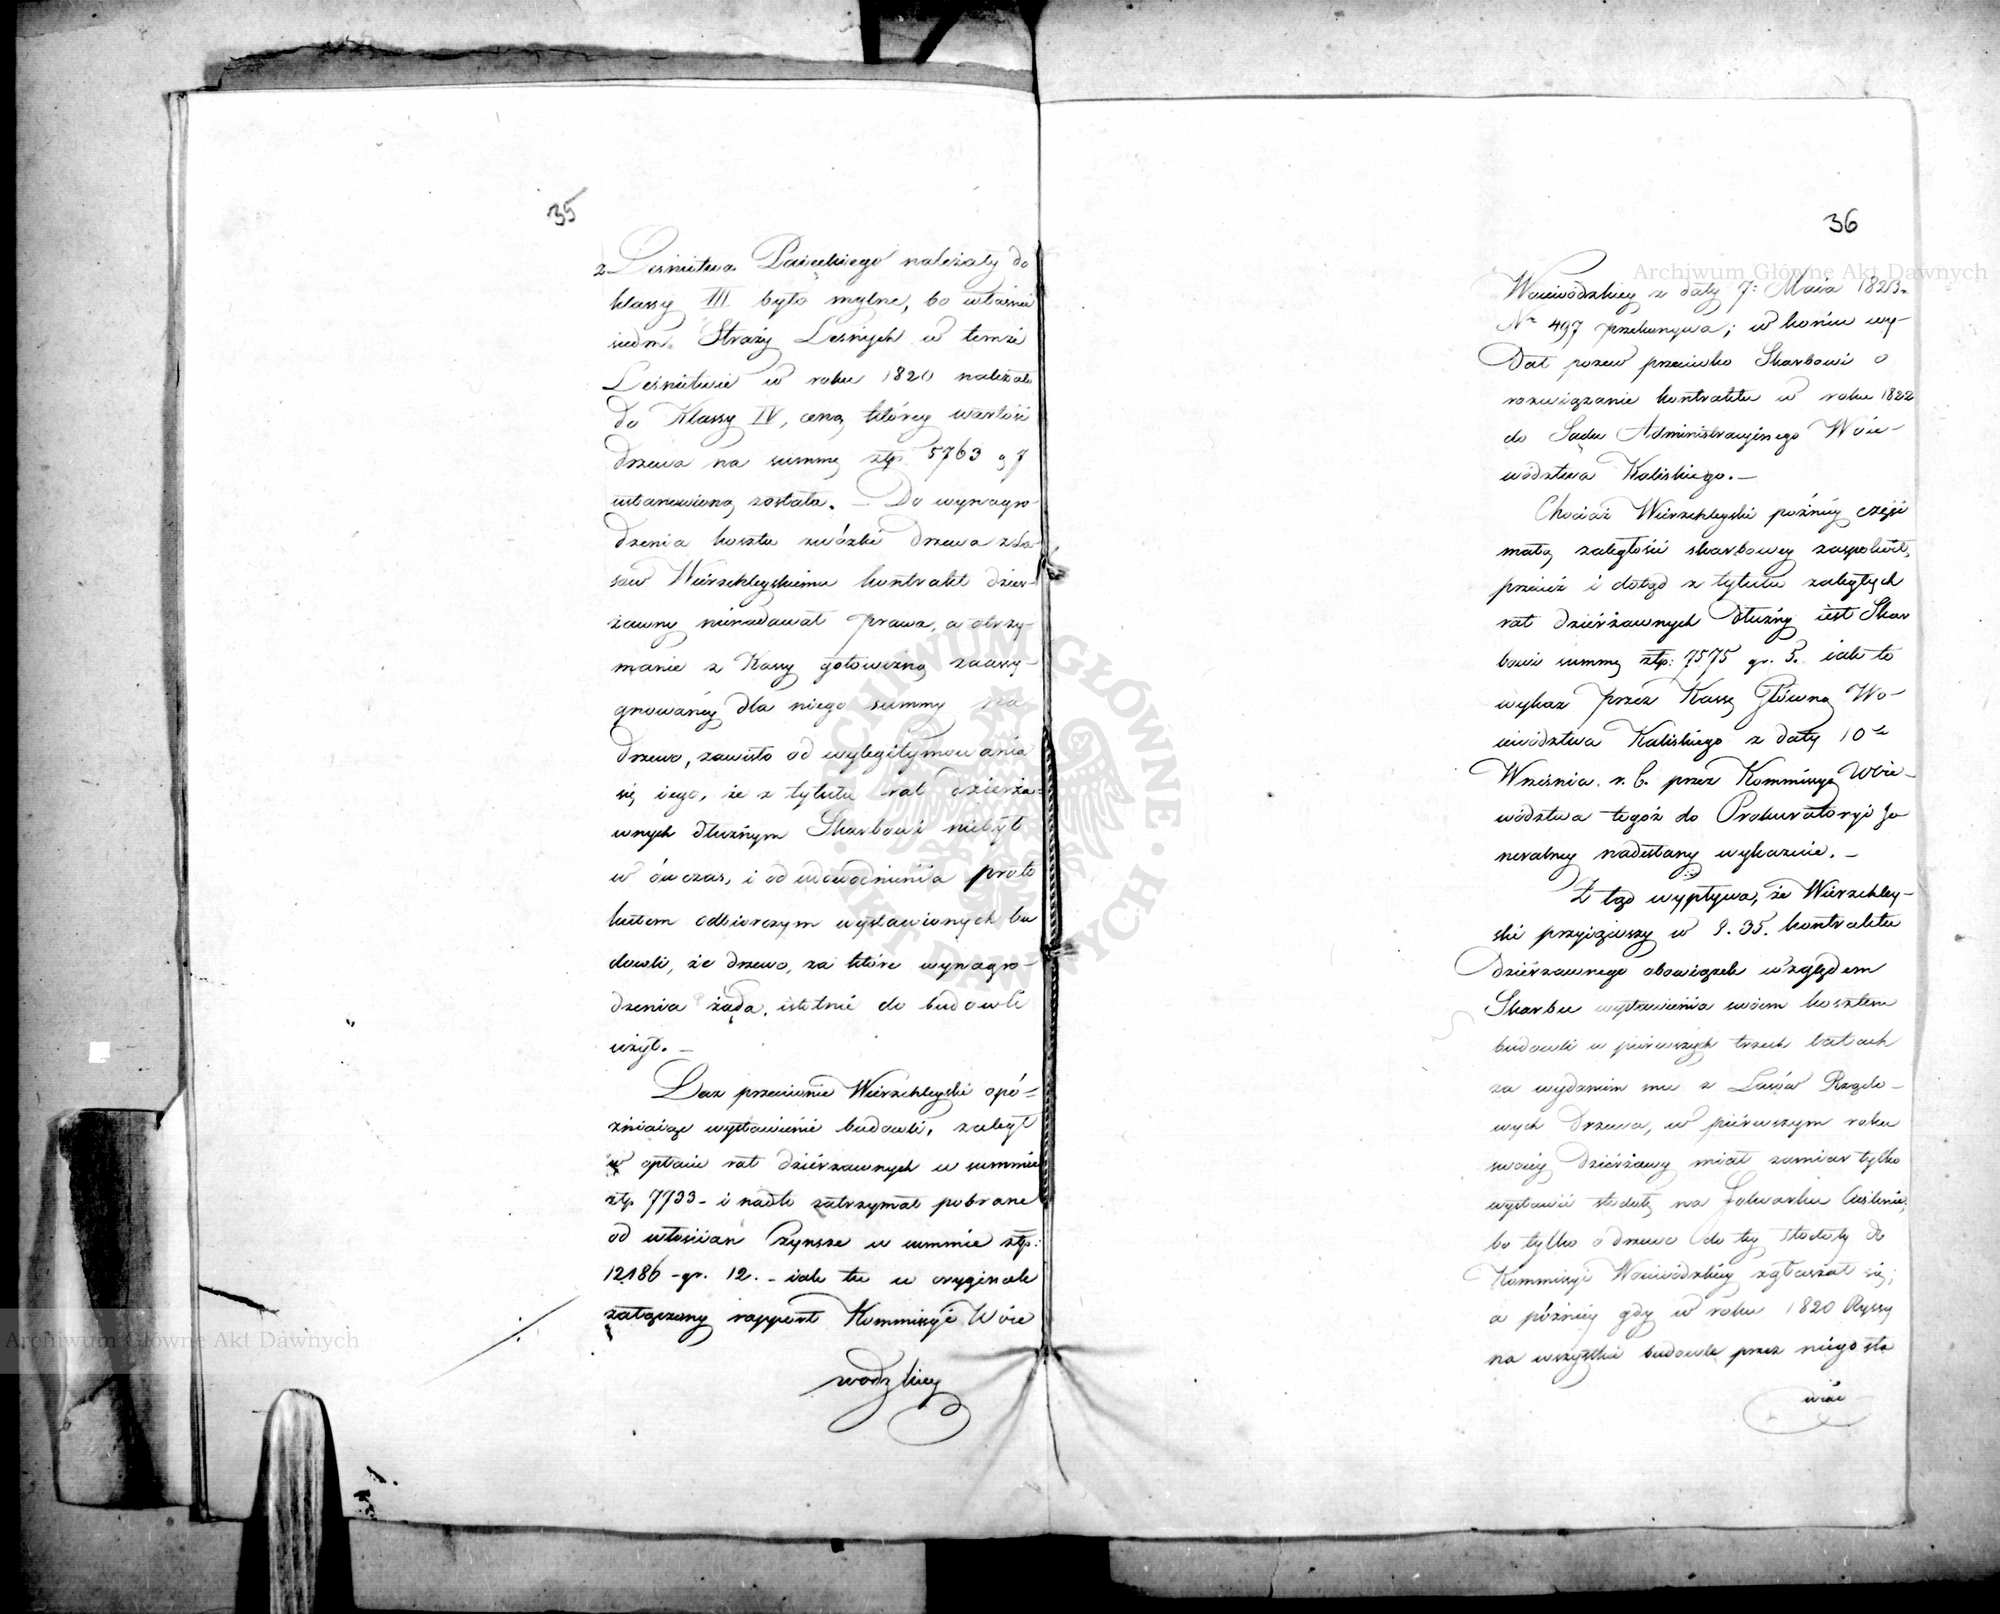 35
z Leśnictwa Paięckiego należały do
klassy III było mylne, bo właśnie
siedm Straży Leśnych w temże
Leśnictwie w roku 1820 należało
do Klassy IV, ceną którey wartość
drzewa na summę złp. 5763 g 7
ustanowioną została. — Do wynagro-
dzenia kosztu zwózki drzewa z La-
sów Wierzchleyskiemu kontrakt dzier-
żawny nienadawał prawa, a otrzy-
manie z Kassy gotowizną zaassy-
gnowanéy dla niego summy na
drzewo, zawisło od wylegitymowania
się iego, że z tytułu rat dzierża-
wnych dłużnym Skarbowi niebył
w ów czas, i od udowodnienia proto
kułem odbiorczym wystawionych bu
dowli, że drzewo, za które wynagro-
dzenia żąda, istotnie do budowli
użył. —
Lecz przeciwnie Wierzchleyski opó-
źniaiąc wystawienie budowli, zaległ
w opłacie rat dzierżawnych w summie
złp. 7733 - i nadto zatrzymał pobrane
od włościan Czynsze w summie złp:
12186 - gr. 12. - iak tu w oryginale
załączony rapport Kommissyi Woie
wodzkiey
36
Woiewódzkiey z daty 7: Maia 1823.
Nr 497 przekonywa; w końcu wy-
dał pozew przeciwko Skarbowi o
rozwiązanie kontraktu w roku 1822
do Sądu Administracyinego Woie-
wództwa Kaliskiego. —
Chociaż Wierzchleyski późniéy część
małą zaległości skarbowey zaspokoił,
przecież i dotąd z tytułu zaległych
rat dzierżawnych dłużny iest Skar
bowi summę złp: 7575 gr. 5. iak to
wykaz przez Kassę Główną Wo-
iewództwa Kaliskiego z daty 10
Września r. b. przez Kommissyą Woie-
wództwa tegoż do Prokuratoryi Je
neralney nadesłany wykazuie. —
Z tąd wypływa, że Wierzchley-
ski przyiąwszy w §. 35. kontraktu
dzierżawnego obowiązek względem
Skarbu wystawienia swoim kosztem
budowli w pierwszych trzech latach
za wydaniem mu z Lasów Rządo-
wych drzewa, w pierwszym roku
swoiey dzierżawy miał zamiar tylko
wystawić stodołę na folwarku
bo tylko o drzewo do tey stodoły do
Kommissyi Woiewódzkiey zgłaszał się;
a późniey gdy w roku 1820 Ryssy
na wszystkie budowle przez niego sta
wiać
Archiwum Główne Akt Dawnych
Archiwum Główne Akt Dawnych
ARCHIWUM GŁÓWNE · AKT DAWNYCH ·